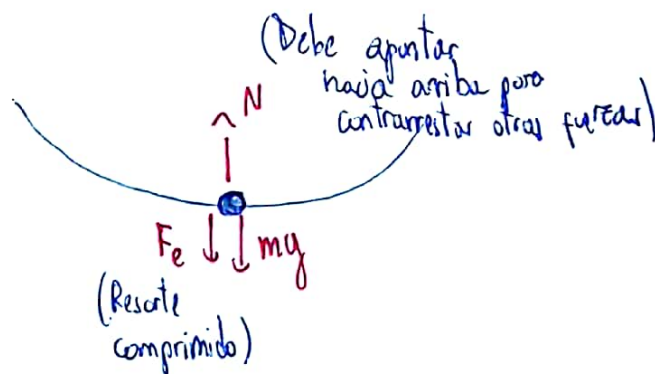 (Debe apuntar
hacia arriba para
contrarrestar otras fuerzas)
N
Fe mg
(Resorte
comprimido)